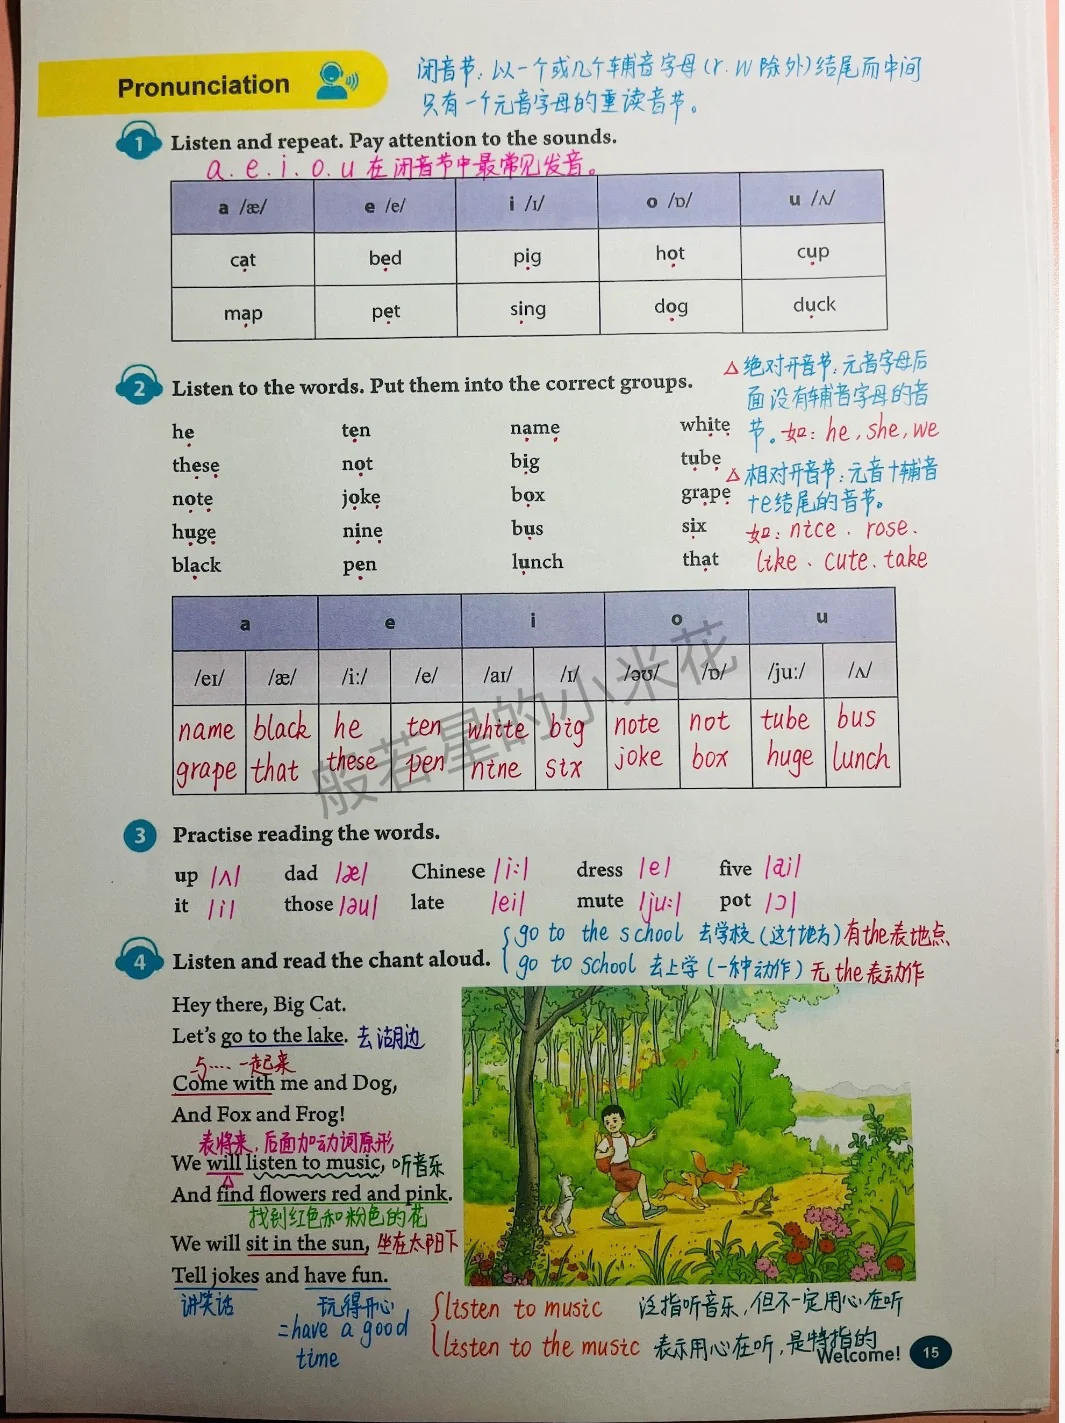 Pronunciation
闭音节：以一个或几个辅音字母(r.w除外)结尾而中间
只有一个元音字母的重读音节。
1 Listen and repeat. Pay attention to the sounds.
a.e.i.o.u在闭音节中最常见发音。
a /æ/ e /e/ i /ɪ/ o /ɒ/ u /ʌ/
cat bed pig hot cup
map pet sing dog duck
2 Listen to the words. Put them into the correct groups.
△绝对开音节：元音字母后
面没有辅音字母的音
节。如：he, she, we
△相对开音节：元音+辅音
+e结尾的音节。
如：nice、rose、
like、cute、take
he ten name white
these not big tube
note joke box grape
huge nine bus six
black pen lunch that
a e i o u
/eɪ/ /æ/ /i:/ /e/ /aɪ/ /ɪ/ /əʊ/ /ɒ/ /ju:/ /ʌ/
name black he ten white big note not tube bus
grape that these pen nine six joke box huge lunch
般若星的小米花
3 Practise reading the words.
up /ʌ/ dad /æ/ Chinese /i:/ dress /e/ five /ai/
it /i/ those /əu/ late /ei/ mute /ju:/ pot /ɔ/
go to the school 去学校(这个地方)有the表地点、
go to school 去上学(一种动作)无the表动作
4 Listen and read the chant aloud.
Hey there, Big Cat.
Let's go to the lake. 去湖边
与....一起来
Come with me and Dog,
And Fox and Frog!
表将来，后面加动词原形
We will listen to music, 听音乐
And find flowers red and pink.
找到红色和粉色的花
We will sit in the sun, 坐在太阳下
Tell jokes and have fun.
讲笑话 玩得开心
=have a good
time
listen to music 泛指听音乐，但不一定用心在听
listen to the music 表示用心在听，是特指的
Welcome! 15